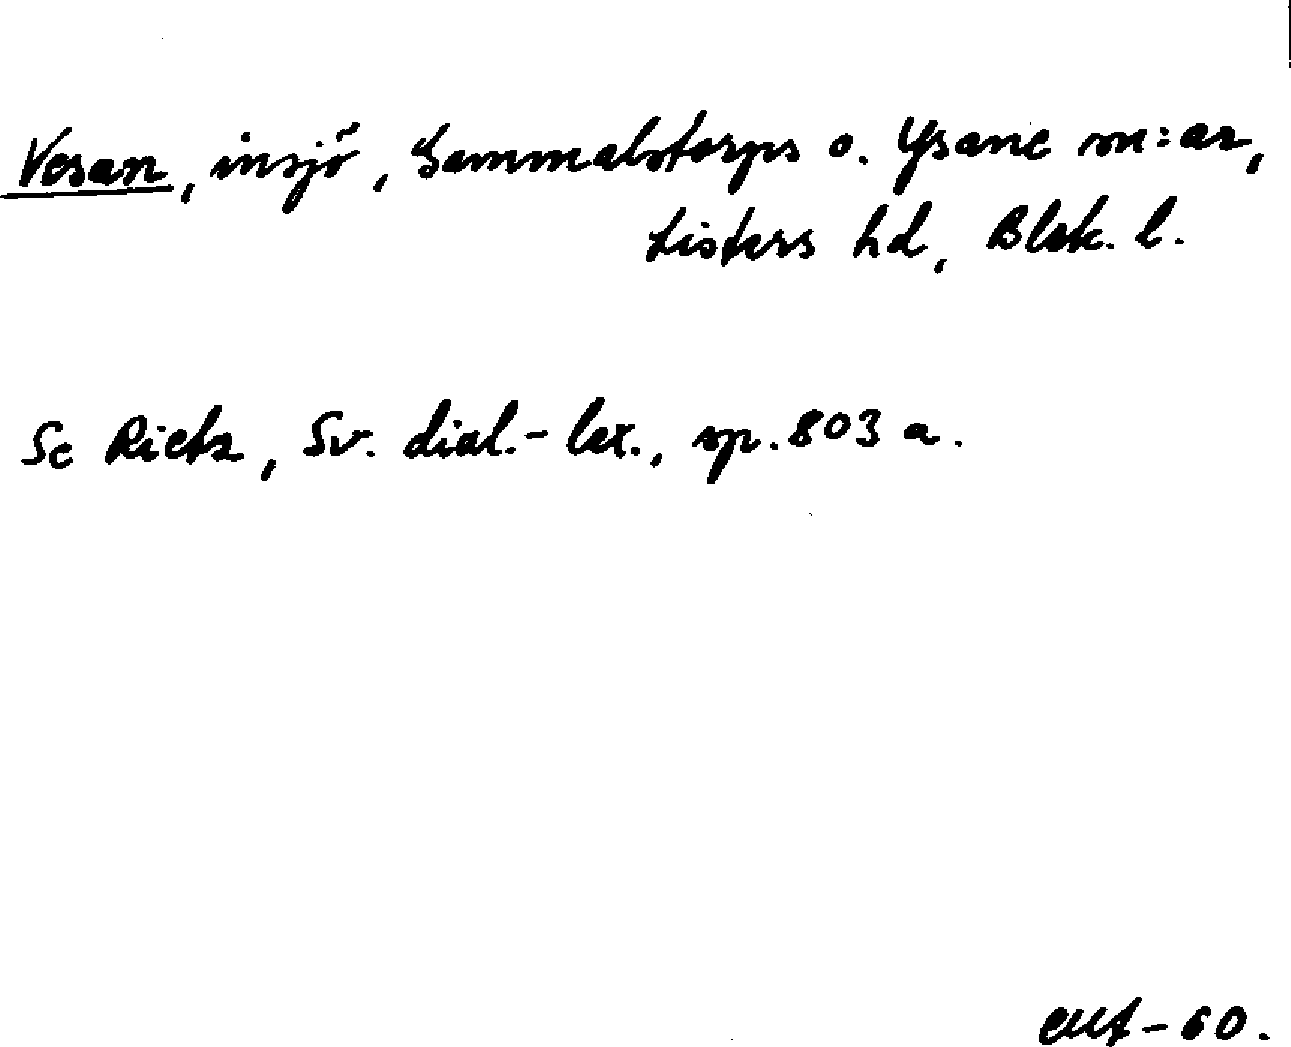 Vesan, insjö, Gammalstorps o. Ysane sn:ar,
Listers hd, Blek. l.
Se Rietz, Sv. dial.-lex., sp. 803 a.
-60.